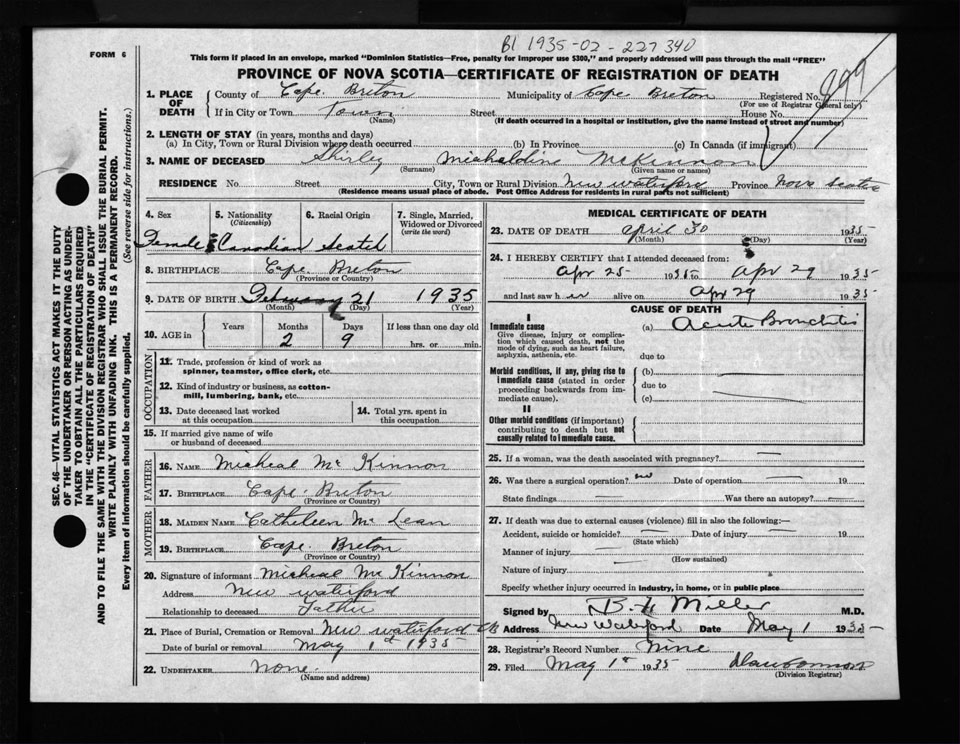 B1 1935-02-227340
FORM 6
This form if placed in an envelope, marked "Dominion Statistics—Free, penalty for improper use $300," and properly addressed will pass through the mail "FREE"
PROVINCE OF NOVA SCOTIA—CERTIFICATE OF REGISTRATION OF DEATH
1. PLACE OF DEATH
County of Cape Breton Municipality of Cape Breton Registered No.
(For use of Registrar General only)
If in City or Town Town Street House No.
(Name) (If death occurred in a hospital or institution, give the name instead of street and number)
2. LENGTH OF STAY (in years, months and days)
(a) In City, Town or Rural Division where death occurred (b) In Province (c) In Canada (if immigrant)
3. NAME OF DECEASED Shirley Michaldine McKinnon
(Surname) (Given name or names)
RESIDENCE No. Street City, Town or Rural Division New Waterford Province Nova Scotia
(Residence means usual place of abode. Post Office Address for residents in rural parts not sufficient)
4. Sex 5. Nationality (Citizenship) 6. Racial Origin 7. Single, Married, Widowed or Divorced (write the word)
Female Canadian Scotch
8. BIRTHPLACE Cape Breton
(Province or Country)
9. DATE OF BIRTH February 21 1935
(Month) (Day) (Year)
10. AGE in Years Months Days If less than one day old
2 9 hrs. or min.
OCCUPATION
11. Trade, profession or kind of work as spinner, teamster, office clerk, etc.
12. Kind of industry or business, as cotton-mill, lumbering, bank, etc.
13. Date deceased last worked at this occupation
14. Total yrs. spent in this occupation
15. If married give name of wife or husband of deceased
FATHER
16. NAME Micheal Mc Kinnon
17. BIRTHPLACE Cape Breton
(Province or Country)
MOTHER
18. MAIDEN NAME Catheleen Mc Lean
19. BIRTHPLACE Cape Breton
(Province or Country)
20. Signature of informant Micheal Mc Kinnon
Address New Waterford
Relationship to deceased Father
21. Place of Burial, Cremation or Removal New Waterford CB
Date of burial or removal May 1st 1935
22. UNDERTAKER None
(Name and address)
MEDICAL CERTIFICATE OF DEATH
23. DATE OF DEATH April 30 1935
(Month) (Day) (Year)
24. I HEREBY CERTIFY that I attended deceased from:
Apr 25 1935 to Apr 29 1935
and last saw her alive on Apr 29 1935
CAUSE OF DEATH
I
Immediate cause
Give disease, injury or complication which caused death, not the mode of dying, such as heart failure, asphyxia, asthenia, etc.
(a) Acute Bronchitis
due to
Morbid conditions, if any, giving rise to immediate cause (stated in order proceeding backwards from immediate cause).
(b)
due to
(c)
II
Other morbid conditions (if important) contributing to death but not causally related to immediate cause.
25. If a woman, was the death associated with pregnancy?
26. Was there a surgical operation? no Date of operation 19
State findings Was there an autopsy?
27. If death was due to external causes (violence) fill in also the following:—
Accident, suicide or homicide? Date of injury 19
(State which)
Manner of injury
(How sustained)
Nature of injury
Specify whether injury occurred in industry, in home, or in public place
Signed by Miller M.D.
Address New Waterford Date May 1 1935
28. Registrar's Record Number Nine
29. Filed May 1st 1935
(Division Registrar)
SEC. 46—VITAL STATISTICS ACT MAKES IT THE DUTY
OF THE UNDERTAKER OR PERSON ACTING AS UNDER-
TAKER TO OBTAIN ALL THE PARTICULARS REQUIRED
IN THE "CERTIFICATE OF REGISTRATION OF DEATH"
AND TO FILE THE SAME WITH THE DIVISION REGISTRAR WHO SHALL ISSUE THE BURIAL PERMIT.
WRITE PLAINLY WITH UNFADING INK. THIS IS A PERMANENT RECORD.
Every item of information should be carefully supplied. (See reverse side for instructions.)